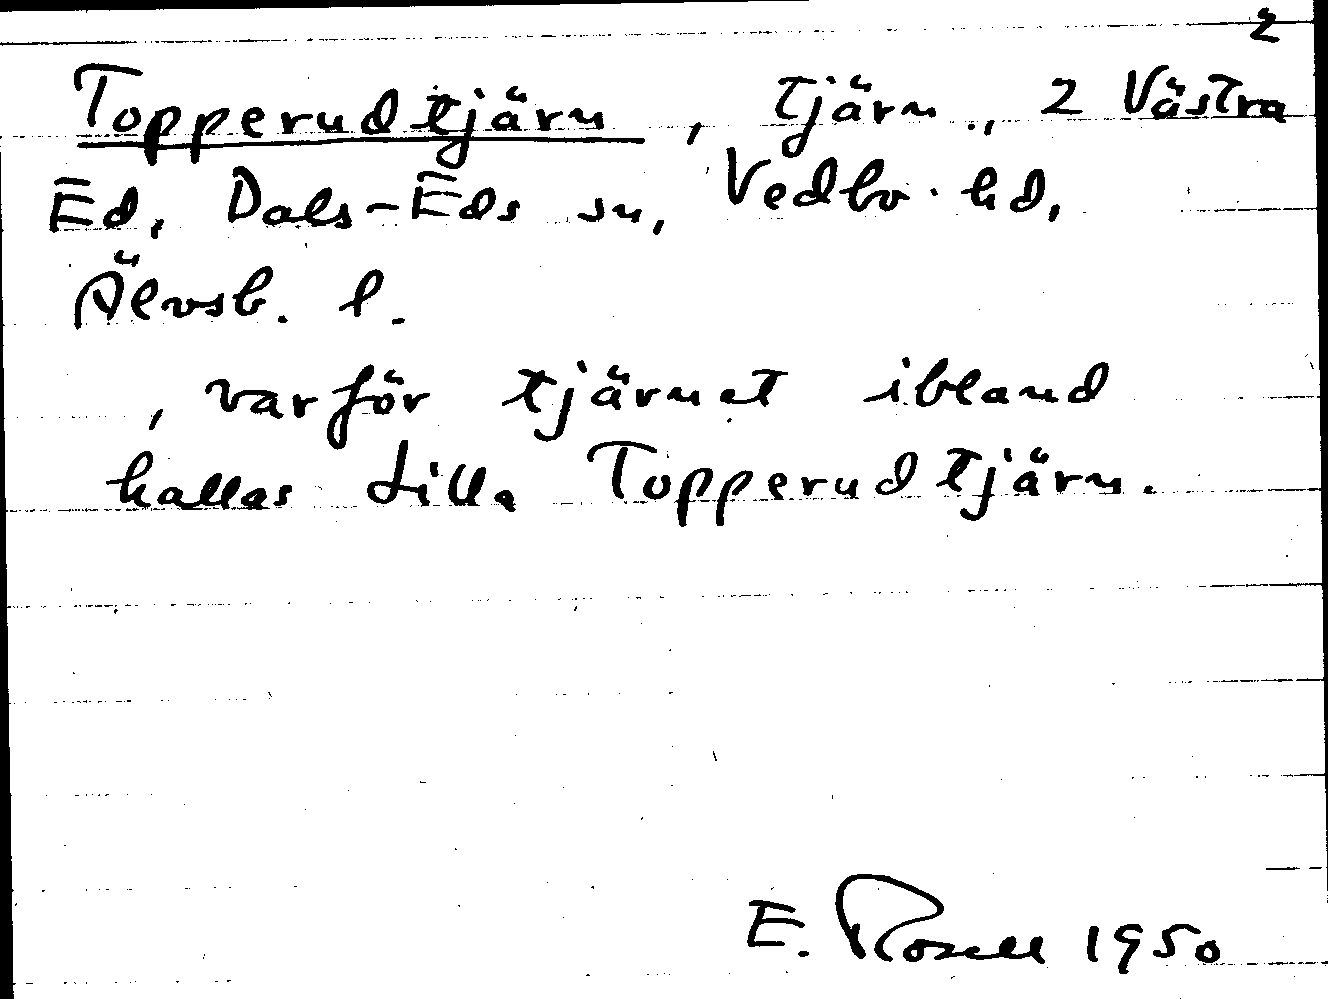 2
Topperudtjärn, tjärn., 2 Västra
Ed, Dals-Eds sn, Vedbo hd,
Älvsb. l.
, varför tjärnet ibland
kallas Lilla Topperudtjärn.
E. Rosell 1950